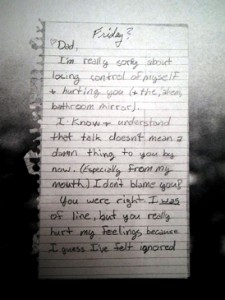 Friday?
Dad,
I'm really sorry about
losing control of myself
+ hurting you (+ the,
bathroom mirror).
I know + understand
that talk doesn't mean a
damn thing to you by
now. (Especially from my
mouth.) I dont blame you!
You were right I was
of line, but you really
hurt my feelings because
I guess I've felt ignored